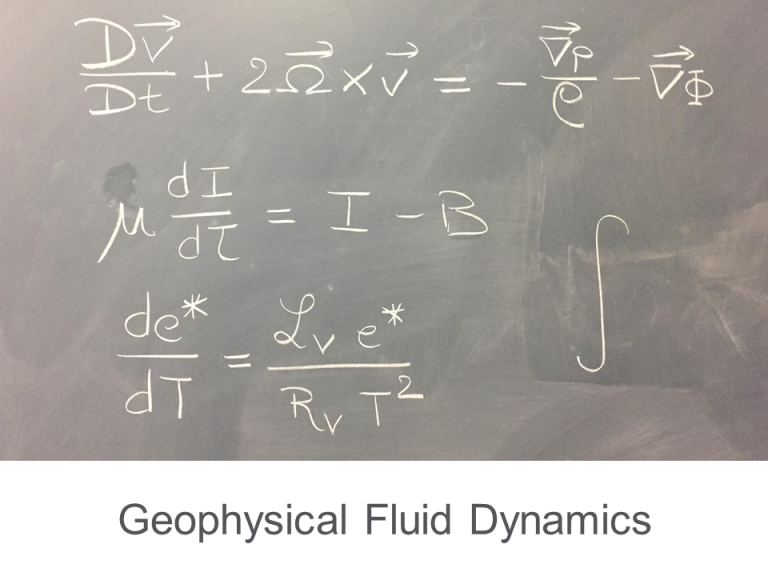 Dv⃗/Dt + 2Ω⃗ × v⃗ = - ∇⃗p/ρ - ∇⃗Φ
μ dI/dτ = I - B
∫
de*/dT = ℒᵥ e*/Rᵥ T²
Geophysical Fluid Dynamics